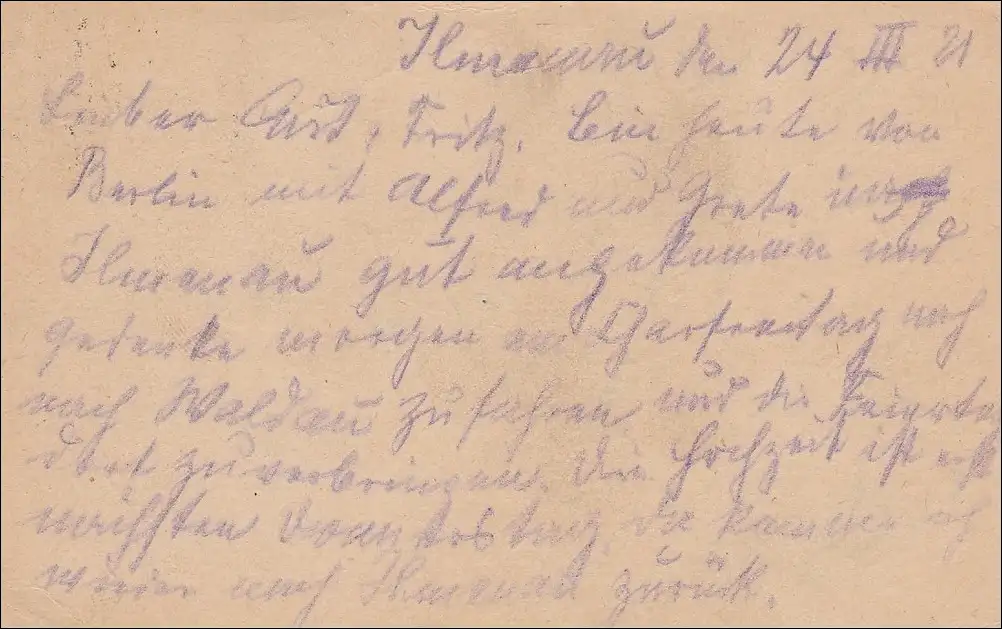 Ilmenau den 24 III 21
Lieber Curt, Fritz. Bin heute von
Berlin mit Alfred und Grete in
Ilmenau gut angekommen und
gedenke morgen am Charfreitag noch
nach Waldau zu fahren und die Feierta
dort zu verbringen. Die Hochzeit ist erst
nächsten Donnerstag, da komme ich
wieder nach Ilmenau zurück.